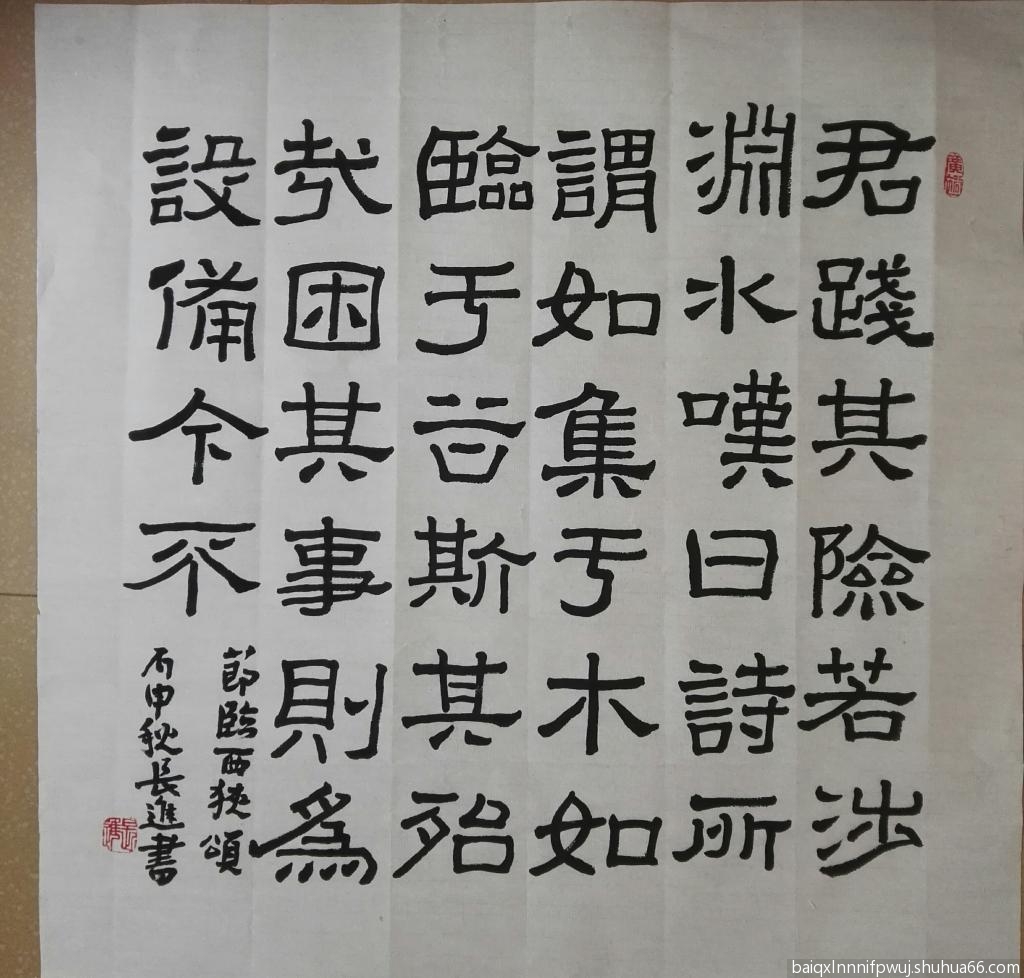 君踐其險若涉
淵水嘆曰詩所
謂如集于木如
臨于谷斯其殆
㢤困其事則為
設備今不
節臨西狹頌
丙申秋長進書
baiqxlnnnifpwuj.shuhua66.com